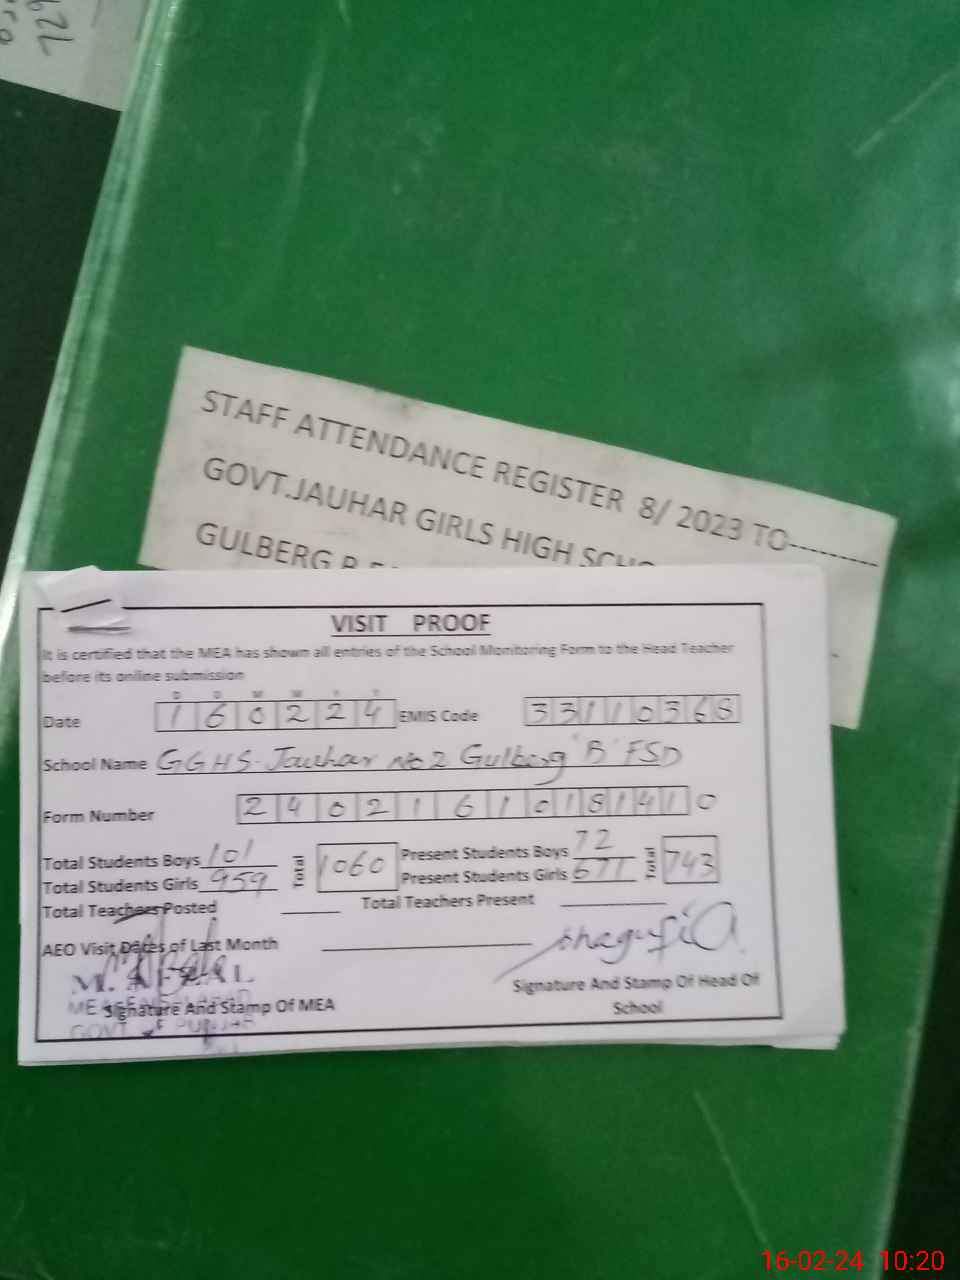 STAFF ATTENDANCE REGISTER 8/ 2023 TO---------
GOVT.JAUHAR GIRLS HIGH
GULBERG
VISIT PROOF
It is certified that the MEA has shown all entries of the School Monitoring Form to the Head Teacher
before its online submission
D D M M Y Y
Date 160224 EMIS Code 33110368
School Name GGHS-Jauhar No 2 Gulberg 'B' FSD
Form Number 24021610181410
Total Students Boys 101 Total 1060 Present Students Boys 72 Total 743
Total Students Girls 959 Present Students Girls 671
Total Teachers Posted Total Teachers Present
AEO Visit Dates of Last Month
Signature And Stamp Of Head Of
School
Signature And Stamp Of MEA
GOVT of PUNJAB
16-02-24 10:20